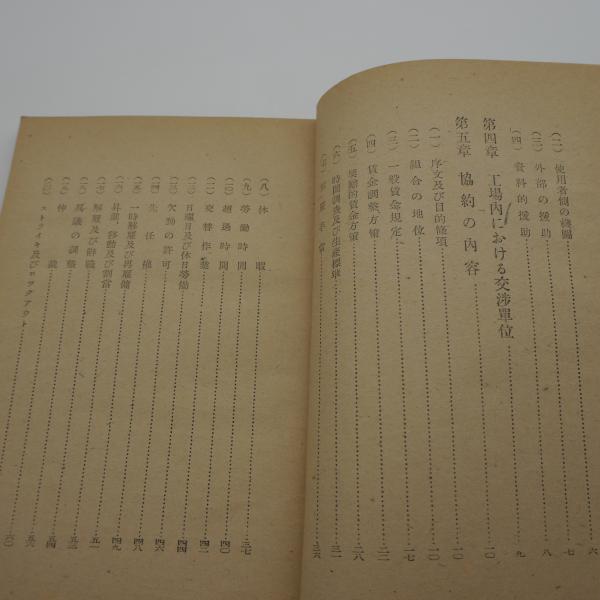 (二) 使用者側の機關 六
(三) 外部の援助 八
(四) 資料的援助 九
第四章 工場內における交涉單位 一〇
第五章 協約の內容 一〇
(一) 序文及び目的條項 一〇
(二) 組合の地位 一七
(三) 一般賃金規定 二二
(四) 賃金調整方策 二八
(五) 奬勵的賃金方策
(六) 時間調査及び生產標準 三一
手當 三六
(八) 休暇 三七
(九) 勞働時間 四〇
(一〇) 超過時間 四二
交替作業 四四
日曜日及び休日勞働 四四
欠勤の許可 四六
先任權 四八
一時解雇及び再雇傭 四九
昇級、移動及び割當 五一
解雇及び辭職 五三
異議の調整 五四
仲裁 五六
ストライキ及びロックアウト 六〇